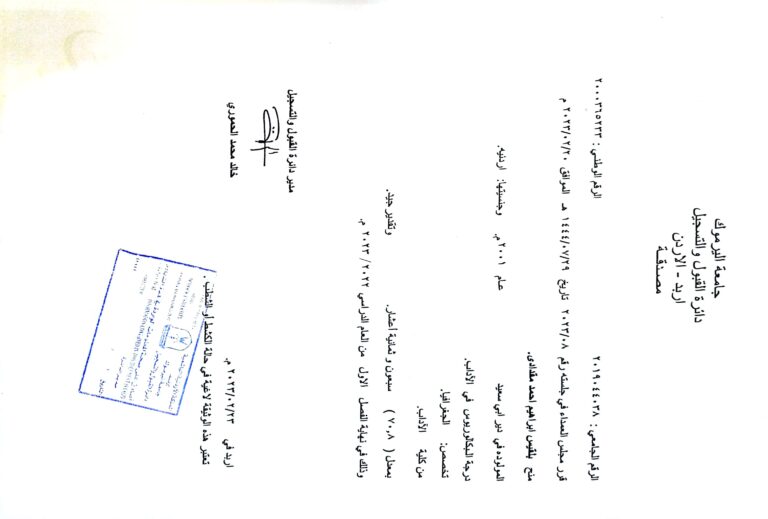 جامعة اليرموك
دائرة القبول والتسجيل
اربد - الاردن
مصدقة
الرقم الجامعي : ٢٠١٩٠٤٤٠٣٨ الرقم الوطني : ٢٠٠٠٣٦٥٢٣٣
قرر مجلس العمداء في جلسته رقم ٢٠٢٣/٠٨ تاريخ ١٤٤٤/٠٧/٢٩ هـ الموافق ٢٠٢٣/٠٢/٢٠ م
منح بلقيس ابراهيم احمد مقدادى.
المولوده في دير ابي سعيد عام ٢٠٠١ م. وجنسيتها: اردنيه.
درجة البكالوريوس في الآداب.
تخصص: الجغرافيا.
من كلية الآداب.
بمعدل ( ٧٠,٨ ) سبعون و ثمانية أعشار. وتقدير جيد.
وذلك في نهاية الفصل الاول من العام الدراسي ٢٠٢٢ / ٢٠٢٣ م.
مدير دائرة القبول والتسجيل
خالد محمد الحموري
اربد في ٢٠٢٣/٠٢/٢٣ م.
تعتبر هذه الوثيقة لاغية في حالة الكشط او الشطب .